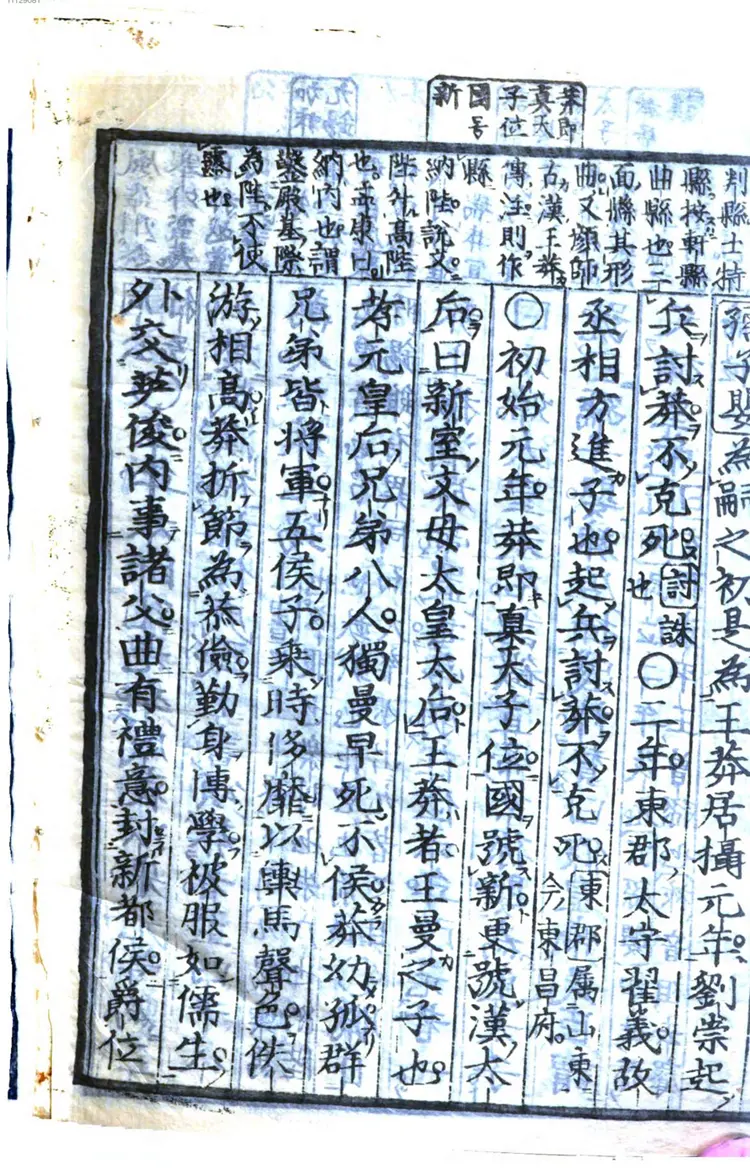 案即
真天
子位
國号
新
判縣士特
縣按軒縣
曲縣也三
面縣其形
曲又顔師
古漢王莽
傳注則作
縣
納陛說文
陛升高陛
也孟康曰
納內也謂
鑿殿基際
為陛不使
露也
孺子嬰為嗣之初是為王莽居攝元年劉崇起
兵討莽不克死也討誅〇二年東郡太守翟義故
丞相方進子也起兵討莽不克死東郡属山東今東昌府
〇初始元年莽即真天子位國號新更號漢太
后曰新室文母太皇太后王莽者王曼之子也
孝元皇后兄弟八人獨曼早死不侯莽幼孤群
兄弟皆將軍五侯子乘時侈靡以輿馬聲色佚
游相高莽折節為恭儉勤身博學被服如儒生
外交英俊內事諸父曲有禮意封新都侯爵位